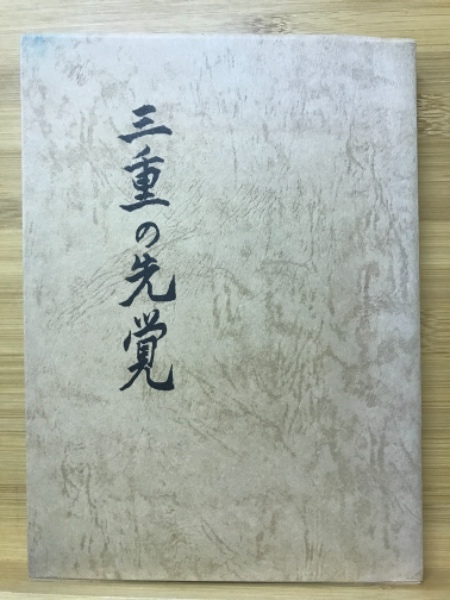 三重の先覚